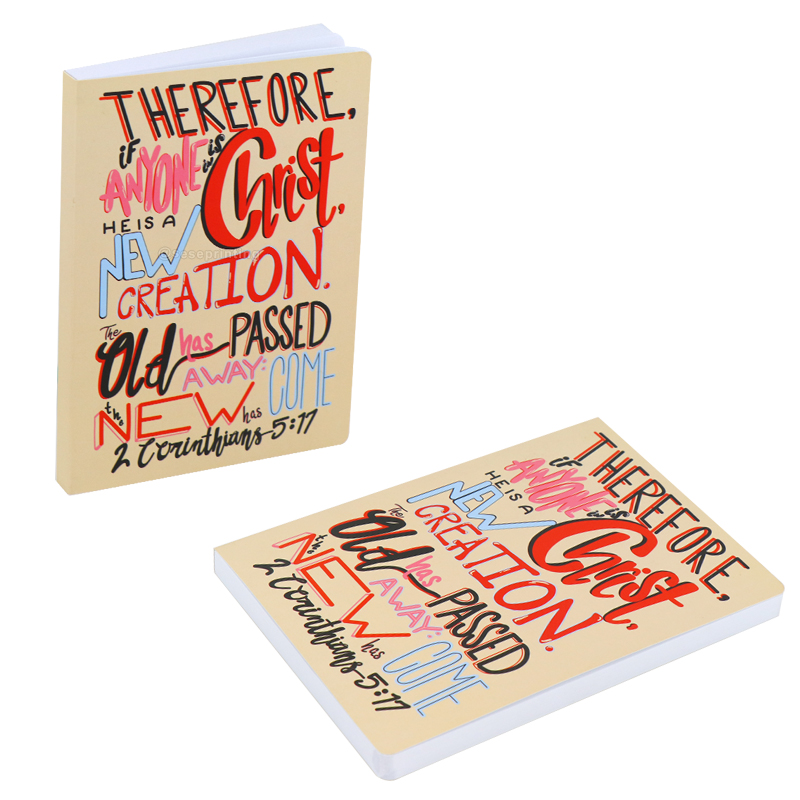 THEREFORE,
iF ANYONE is in Christ,
HE IS A
NEW
CREATION.
The Old has PASSED
AWAY:
the NEW has COME
2 Corinthians 5:17
@seseprinting
THEREFORE,
iF ANYONE is in Christ,
HE IS A
NEW
CREATION.
The Old has PASSED
AWAY:
the NEW has COME
2 Corinthians 5:17